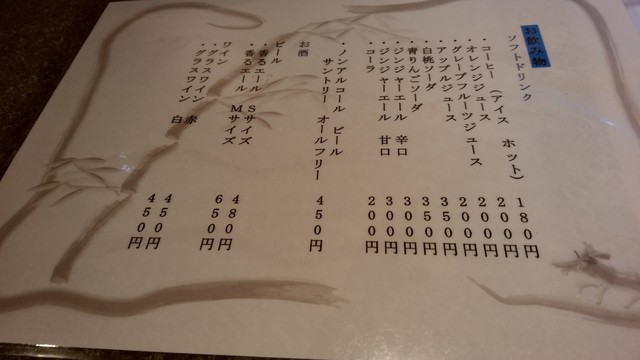 お飲み物
ソフトドリンク
・コーヒー（アイス　ホット）　180円
・オレンジジュース　200円
・グレープフルーツジュース　200円
・アップルジュース　200円
・白桃ソーダ　350円
・青りんごソーダ　350円
・ジンジャーエール　辛口　300円
・ジンジャーエール　甘口　300円
・コーラ　200円
・ノンアルコール　ビール
サントリー　オールフリー　450円
お酒
ビール
・香るエール　Sサイズ　480円
・香るエール　Mサイズ　650円
ワイン
・グラスワイン　赤　450円
・グラスワイン　白　450円